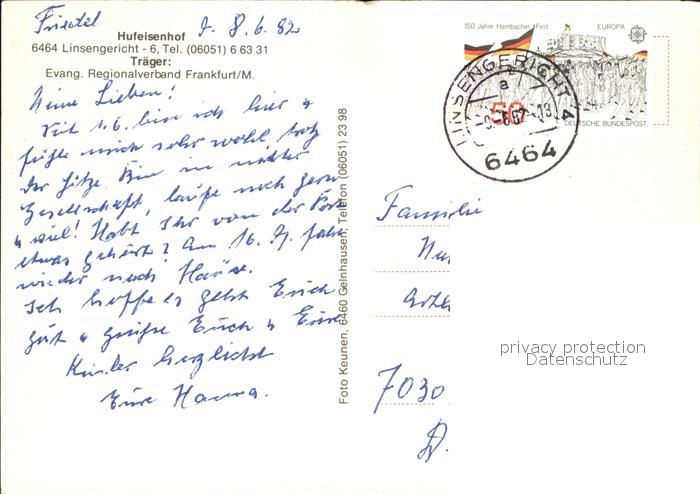 d. 8.6.82
Hufeisenhof
6464 Linsengericht - 6, Tel. (06051) 6 63 31
Träger:
Evang. Regionalverband Frankfurt/M.
Meine Lieben!
Seit 1.6. bin ich hier u
fühle mich sehr wohl, trotz
der Hitze. Bin in netter
Gesellschaft, laufe noch gern
u viel! Habt Ihr von der
etwas gehört? Am 16. fahre
wieder nach Hause.
Ich hoffe es geht Euch
gut u grüße Euch u Eure
Kinder herzlichst
Eure Hanna.
Foto Keunen, 6460 Gelnhausen, Telefon (06051) 23 98
150 Jahre Hambacher Fest
EUROPA
50
DEUTSCHE BUNDESPOST
LINSENGERICHT 4
a
6464
Familie
7030
privacy protection
Datenschutz